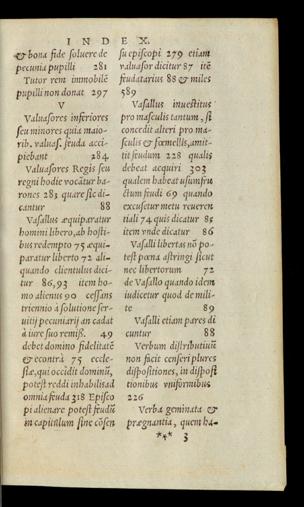 INDEX.
& bona fide soluere de
pecunia pupilli 281
Tutor rem immobilē
pupilli non donat 297
V
Valuasores inferiores
seu minores quia maio-
rib. valuas. feuda acci-
piebant 284
Valuasores Regis seu
regni hodie vocātur ba-
rones 283 quare sic di-
cantur 88
Vasallus æquiparatur
homini libero, ab hosti-
bus redempto 75 æqui-
paratur liberto 72 ali-
quando clientulus dici-
tur 86, 93 item ho-
mo alienus 90 cessans
triennio à solutione ser-
uitij pecuniarij an cadat
à iure suo remiss. 49
debet domino fidelitatē
& econtrà 75 eccle-
siæ, qui occidit dominū,
potest reddi inhabilis ad
omnia feuda 318 Episco
pi alienare potest feudū
in capitulum sine cōsen
su episcopi 279 etiam
valuasor dicitur 87 itē
feudatarius 88 & miles
589
Vasallus inuestitus
pro masculis tantum, si
concedit alteri pro ma-
sculis & fœmellis, amit-
tit feudum 228 qualis
debeat acquiri 303
qualem habeat usumfru
ctum feudi 69 quando
excusetur metu reueren
tiali 74 quis dicatur 85
item vnde dicatur 86
Vasalli libertas nō po-
test pœna astringi sicut
nec libertorum 72
de Vasallo quando idem
iudicetur quod de mili-
te 89
Vasalli etiam pares di
cuntur 88
Verbum distributiuū
non facit censeri plures
dispositiones, in disposi
tionibus vniformibus
226
Verba geminata &
prægnantia, quem ha-
*** 3